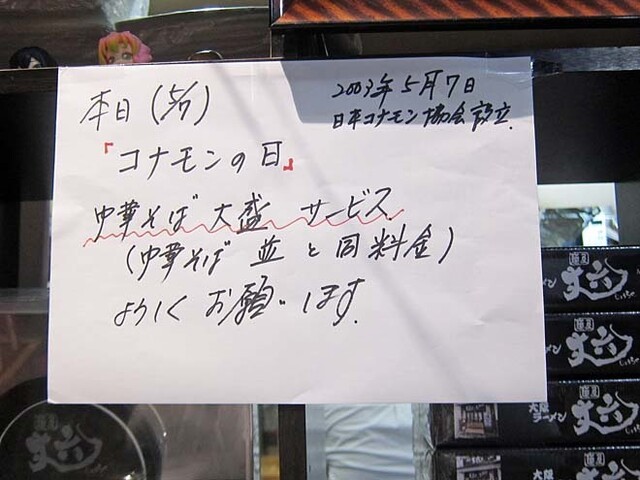 本日(5/7)
2003年5月7日
日本コナモン協会設立.
『コナモンの日』
中華そば 大盛 サービス
(中華そば 並と同料金)
よろしく お願いします.
大阪
ラーメン
大阪